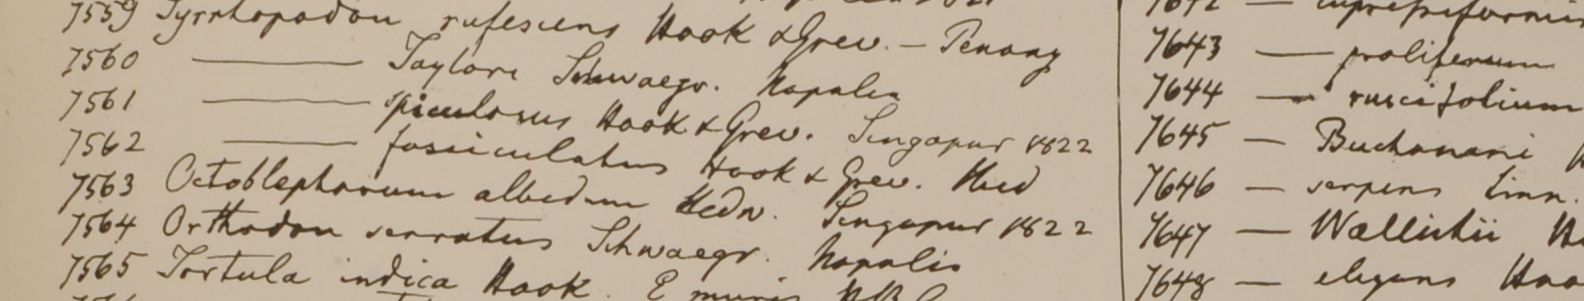 7559 Syrrhopodon rufescens Hook & Grev. — Penang
7560 ——— Taylori Schwaegr. Napalia
7561 ——— spiculosus Hook & Grev. Singapur 1822
7562 ——— fasciculatus Hook & Grev. Ibid
7563 Octoblepharum albidum Hedw. Singapur 1822
7564 Orthodon serratus Schwaegr. Napalia
7565 Tortula indica Hook. E muris
7642 — cupressiformis
7643 — proliferum
7644 — ruscifolium
7645 — Buchanani
7646 — serpens Linn.
7647 — Wallichii
7648 — elegans